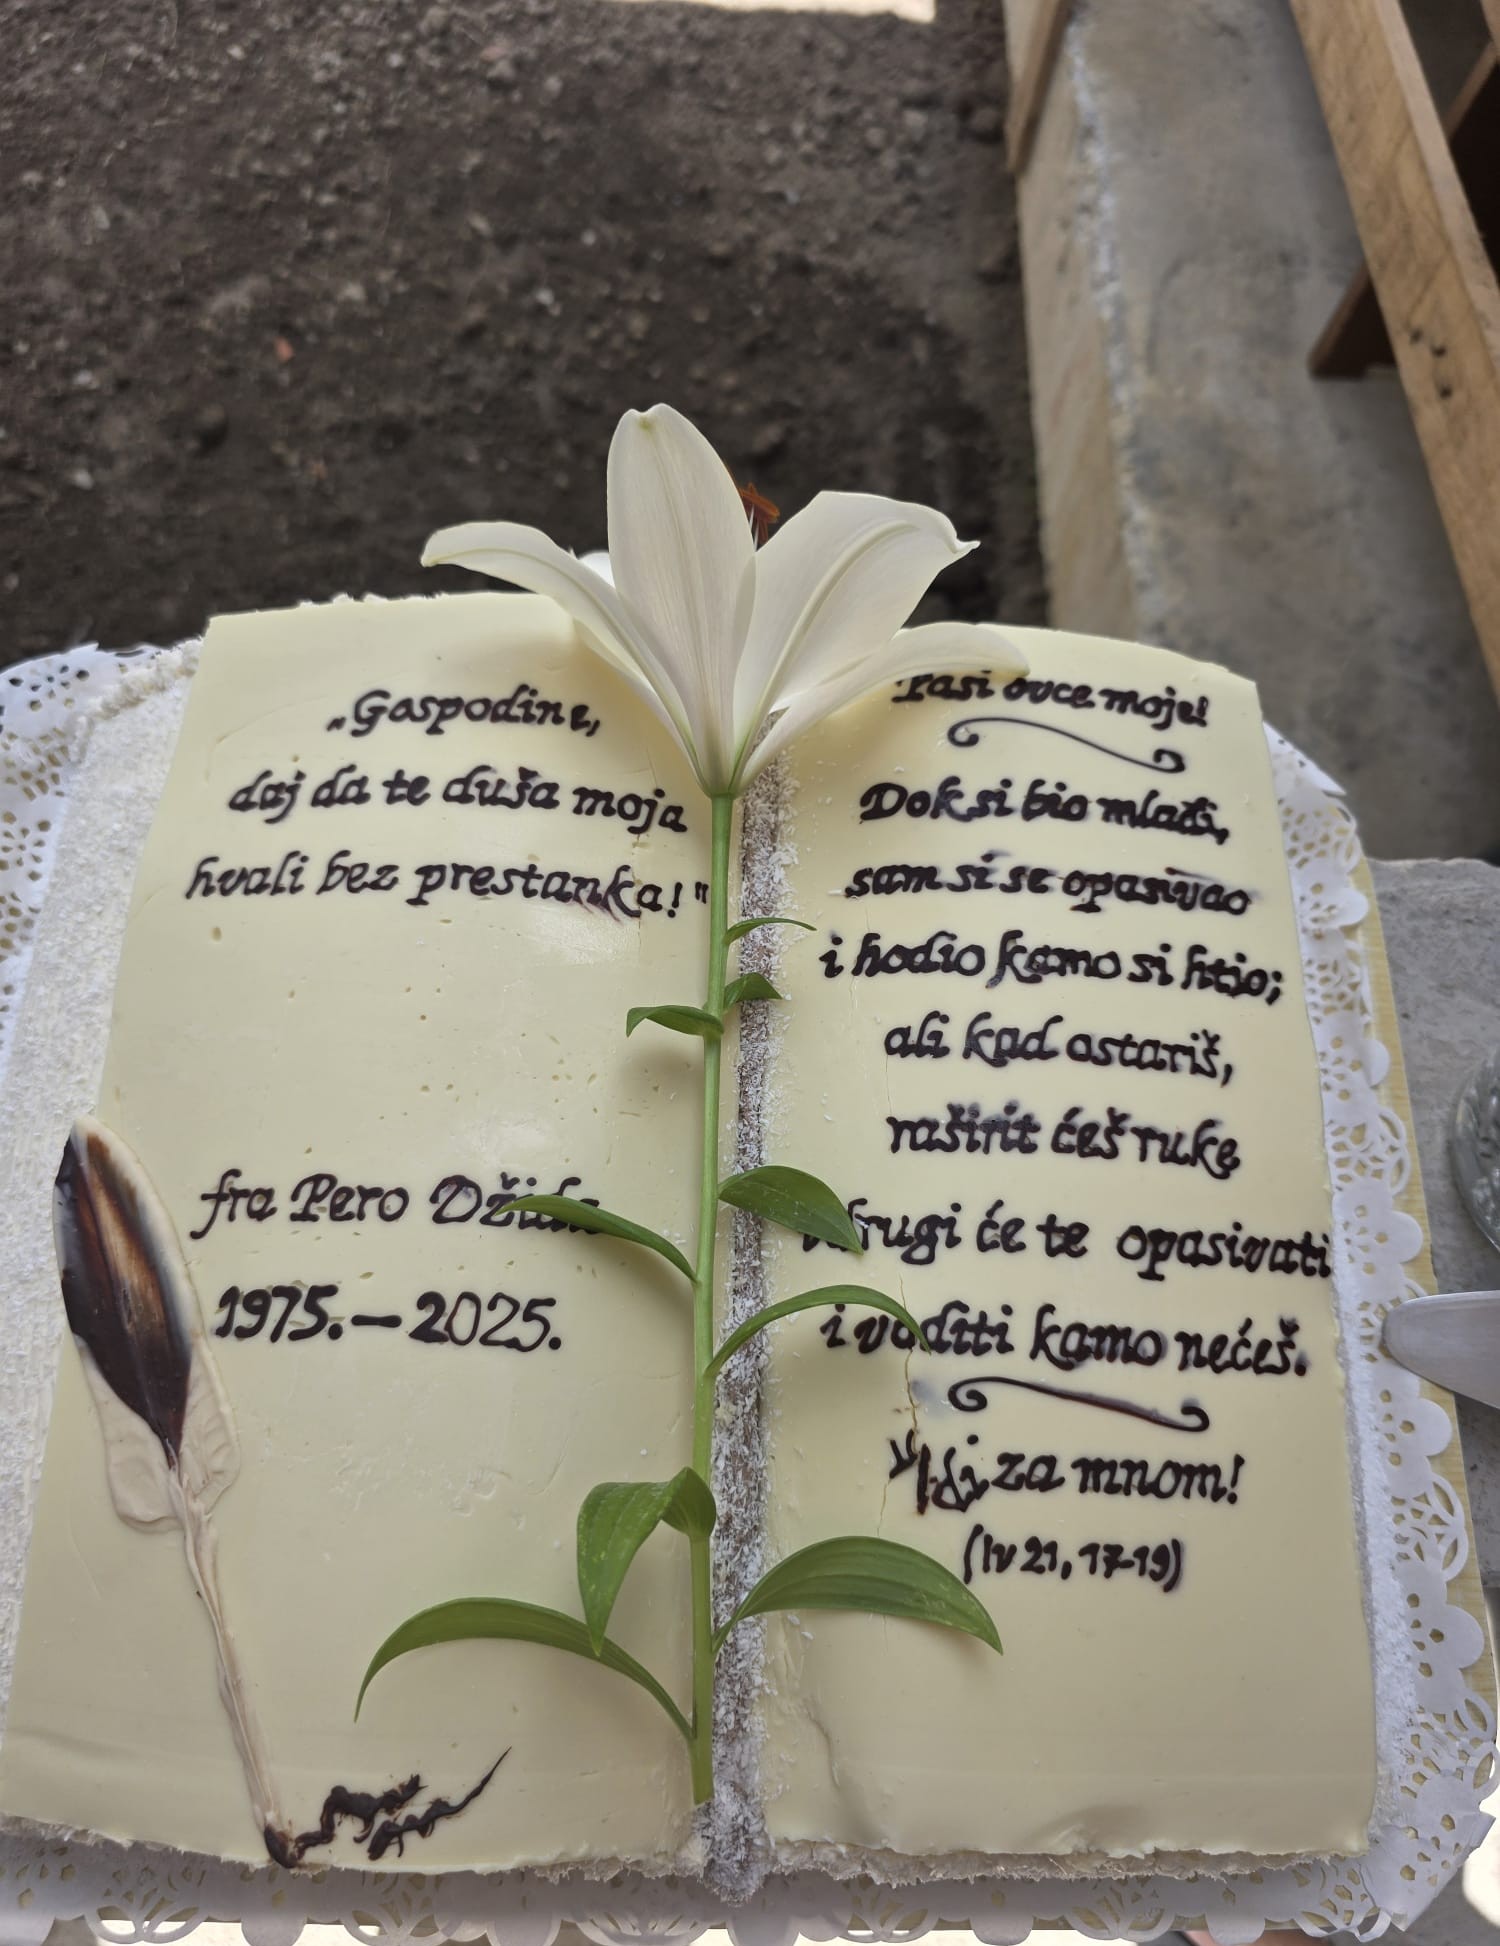 „Gospodine,
daj da te duša moja
hvali bez prestanka!"
fra Pero Džida
1975.-2025.
Pasi ovce moje!
Dok si bio mlađi,
sam si se opasivao
i hodio kamo si htio;
ali kad ostariš,
raširit ćeš ruke
drugi će te opasivati
i voditi kamo nećeš.
za mnom!
(Iv 21, 17-19)